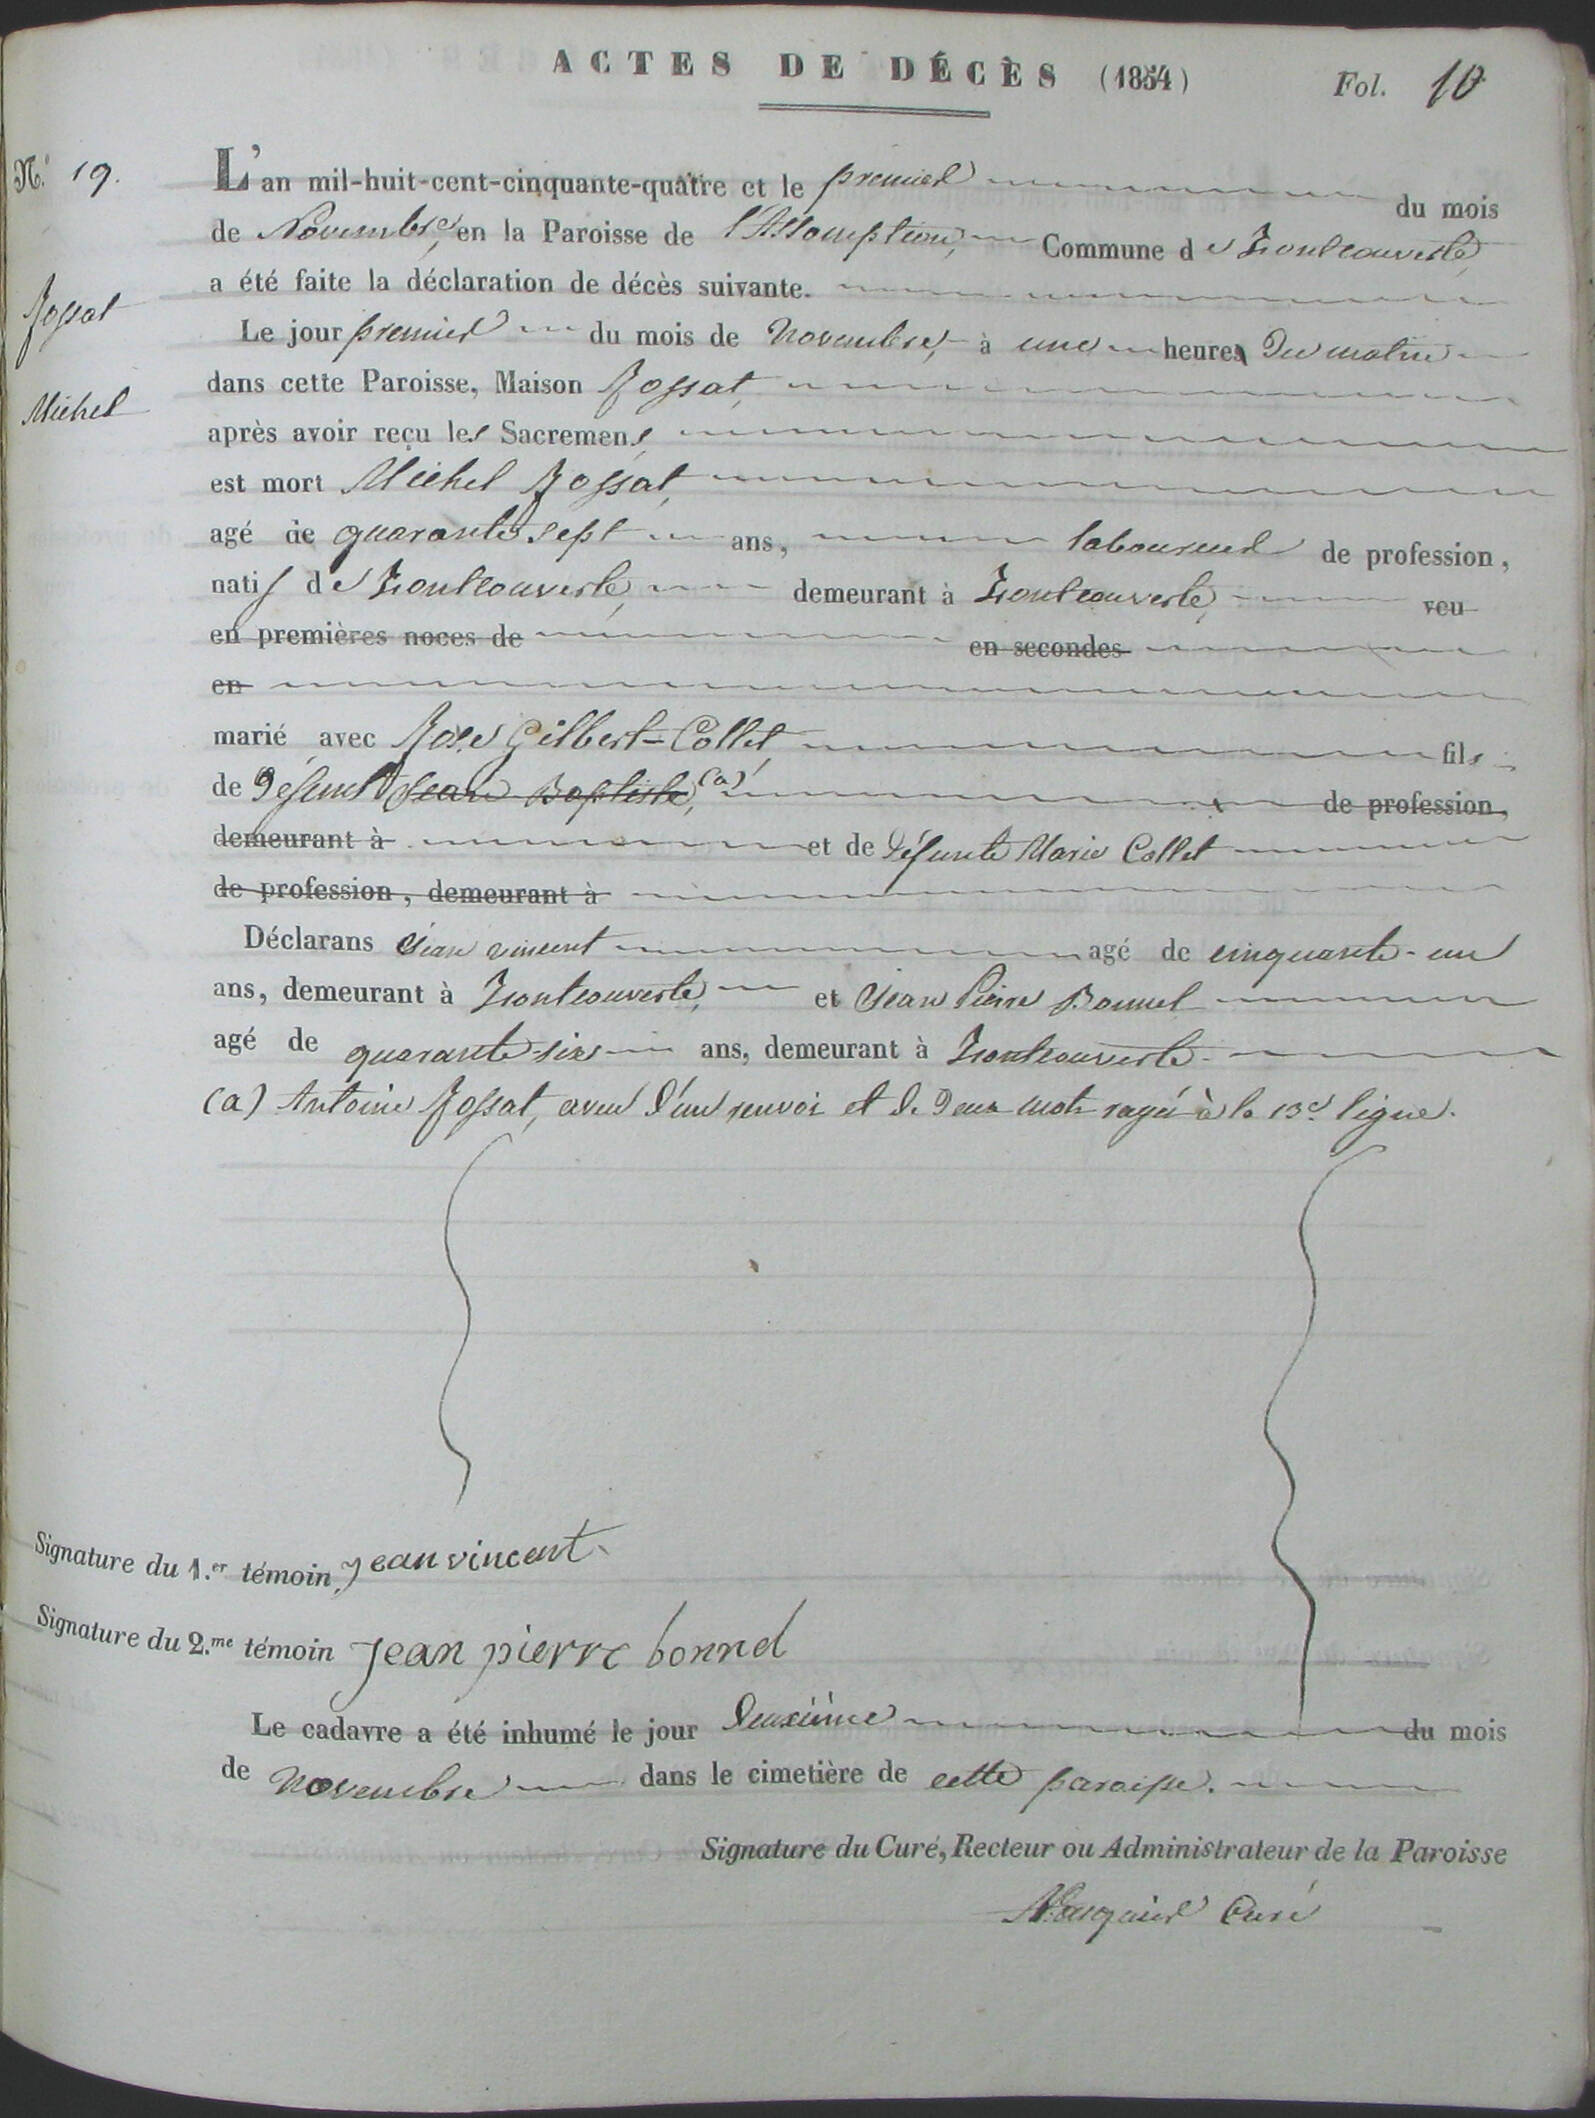 ACTES DE DÉCÈS (1854)
Fol. 10
N.° 19.
Rossat
Michel
L'an mil-huit-cent-cinquante-quatre et le premier du mois
de Novembre, en la Paroisse de l'Assomption, Commune de Montcouverte,
a été faite la déclaration de décès suivante.
Le jour premier du mois de Novembre, à une heures du matin
dans cette Paroisse, Maison Rossat,
après avoir reçu les Sacremens,
est mort Michel Rossat,
agé de quarante sept ans, laboureur de profession,
natif de Montcouverte, demeurant à Montcouverte, veu
en premières noces de en secondes
en
marié avec Rose Gilbert-Collet, fils
de Défunt Jean Baptiste, (a) de profession,
demeurant à et de défunte Marie Collet
de profession, demeurant à
Déclarans Jean Vincent agé de cinquante-un
ans, demeurant à Montcouverte, et Jean Pierre Bonnel
agé de quarante-six ans, demeurant à Montcouverte.
(a) Antoine Rossat, aveu d'un renvoi et de deux mots rayés à la 13e ligne.
Signature du 1.er témoin, jean vincent
Signature du 2.me témoin jean pierre bonnel
Le cadavre a été inhumé le jour deuxième du mois
de Novembre dans le cimetière de cette paroisse.
Signature du Curé, Recteur ou Administrateur de la Paroisse
Curé